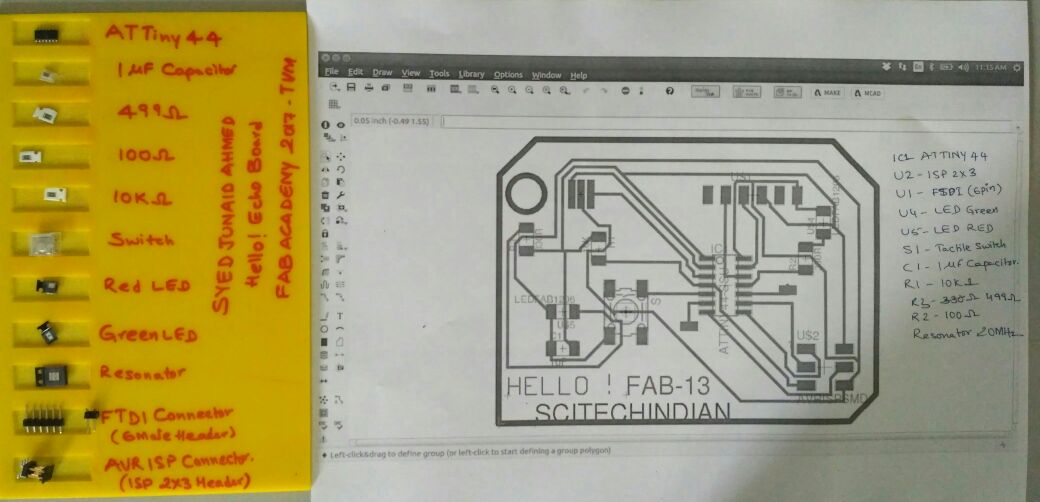 ATTiny44
1 µF Capacitor
499Ω
100Ω
10KΩ
Switch
Red LED
Green LED
Resonator
FTDI Connector
(6 Male Header)
AVR ISP Connector.
(ISP 2x3 Header)
SYED JUNAID AHMED
Hello! Echo Board
FAB ACADEMY 2017 - TVM
File Edit Draw View Tools Library Options Window Help
11:15 AM
MAKE
MCAD
0.05 inch (-0.49 1.55)
LEDFAB1206
U$5
C1
IC1
R2
U$2
HELLO ! FAB-13
SCITECHINDIAN
Left-click&drag to define group (or left-click to start defining a group polygon)
IC1 ATTINY 44
U2 - ISP 2X3
U1 - FTDI (6pin)
U4 - LED Green
U5 - LED RED
S1 - Tactile Switch
C1 - 1 µF Capacitor.
R1 - 10KΩ
R3 - 330Ω 499Ω
R2 - 100Ω
Resonator 20MHz